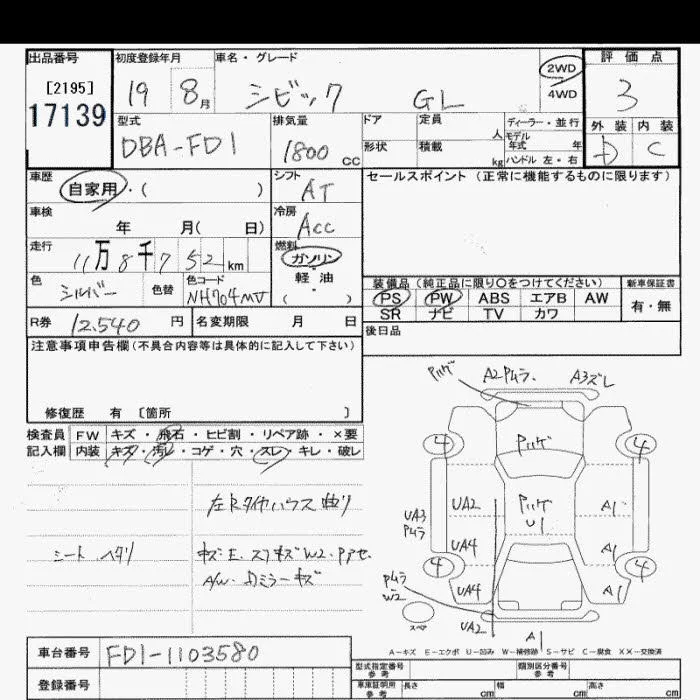 出品番号
[2195]
17139
初度登録年月
19 8月
車名・グレード
シビック GL
2WD
4WD
評価点
3
型式
DBA-FD1
排気量
1800 cc
ドア
定員
人
ディーラー・並行
モデル年式 年
形状
積載
kg
ハンドル 左・右
外装 内装
D C
車歴
自家用・( )
シフト
AT
セールスポイント (正常に機能するものに限ります)
車検
年 月( 日)
冷房
Acc
走行
11万8千752km
燃料
ガソリン
軽油
( )
色
シルバー
色替
色コード
NH704MV
装備品 (純正品に限り○をつけてください)
新車保証書
PS PW ABS エアB AW
SR ナビ TV カワ
有・無
R券
12,540 円
名変期限 月 日
後日品
注意事項申告欄 (不具合内容等は具体的に記入して下さい)
修復歴 有 〔箇所 〕
検査員 FW キズ・飛石・ヒビ割・リペア跡・×要
記入欄 内装 キズ・汚レ・コゲ・穴・スレ・キレ・破レ
左R タイヤハウス 曲り
シート ヘタリ
A2 Pムラ. A3ズレ
4 4
UA2
UA3
Pムラ
A1
U1
UA4
A1
4 4
UA4
A1
Pムラ
W2
スペア
UA2
A1
A-キズ E-エクボ U-凹み W-補修跡 S-サビ C-腐食 XX-交換済
車台番号
FD1-1103580
登録番号
型式指定番号
参考
類別区分番号
参考
車庫証明用
参考
長さ cm
幅 cm
高さ cm